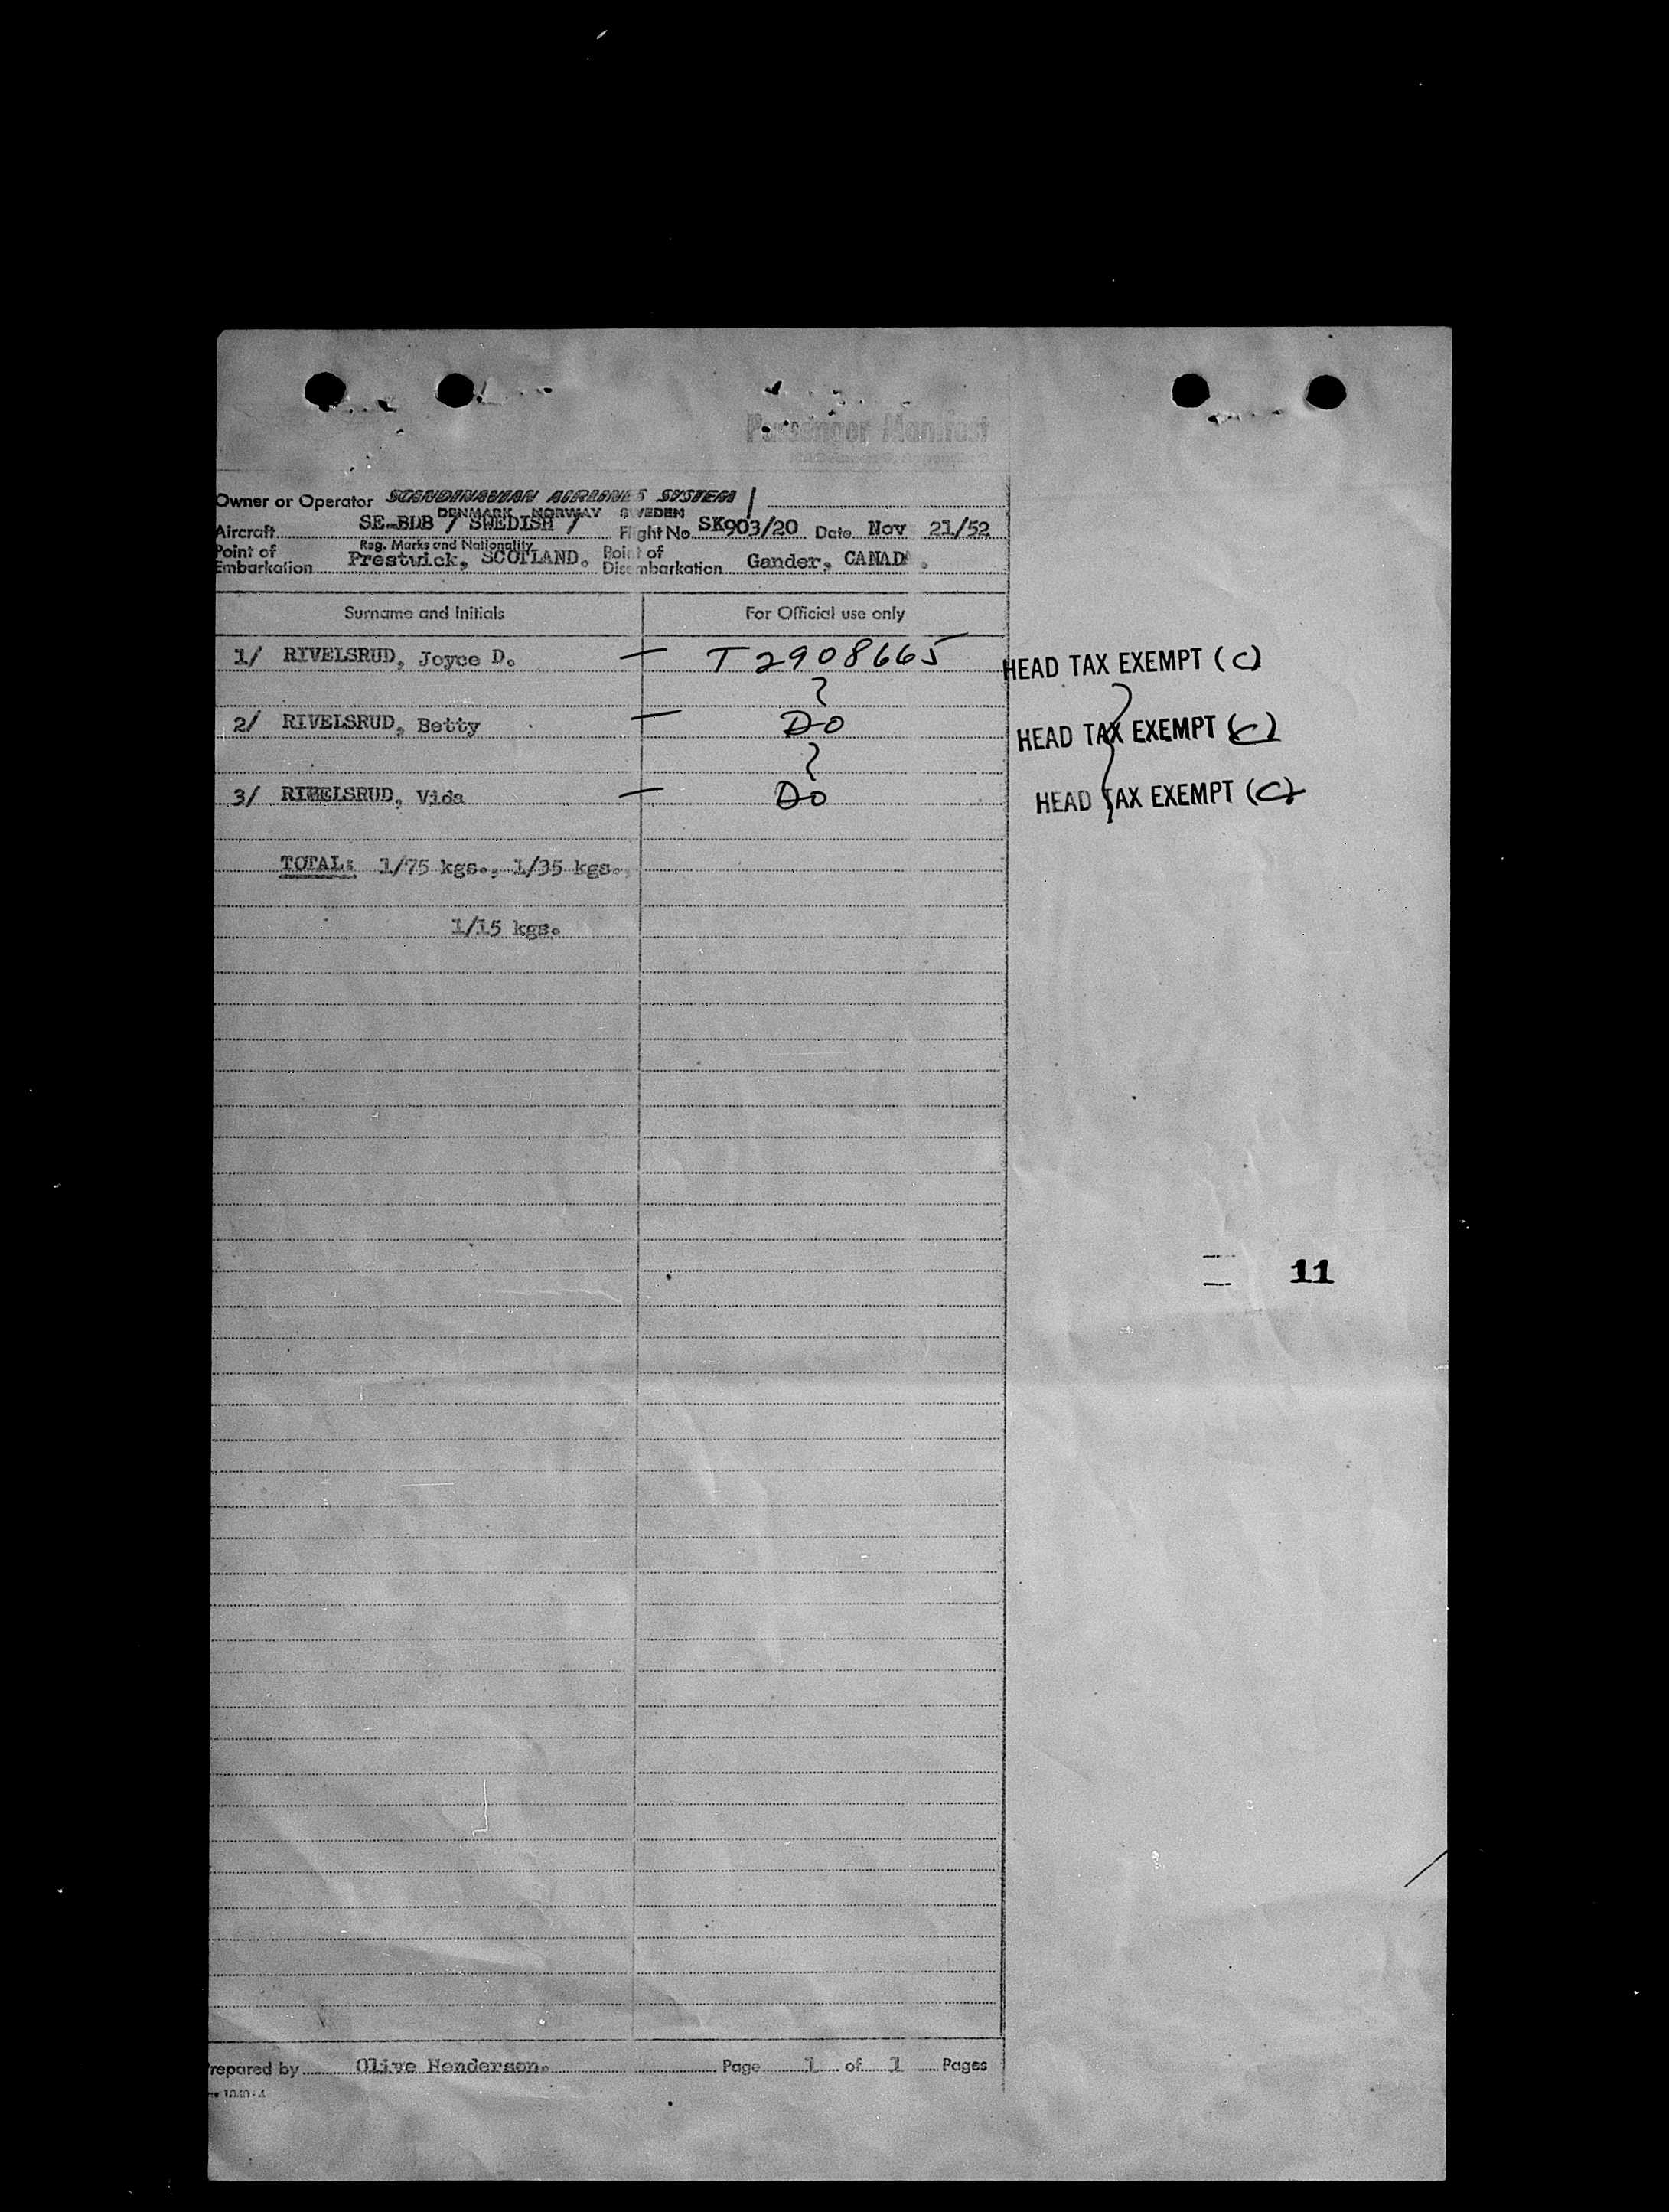 Passenger Manifest
Owner or Operator SCANDINAVIAN AIRLINES SYSTEM
DENMARK NORWAY SWEDEN
Aircraft SE-BDB / SWEDISH / Flight No SK903/20 Date Nov 21/52
Reg. Marks and Nationality
Point of Embarkation Prestwick, SCOTLAND. Point of Disembarkation Gander, CANADA.
Surname and Initials For Official use only
1/ RIVELSRUD, Joyce D. — T2908665 HEAD TAX EXEMPT (C)
2/ RIVELSRUD, Betty — DO HEAD TAX EXEMPT (C)
3/ RIVELSRUD, Vida — DO HEAD TAX EXEMPT (C)
TOTAL: 1/75 kgs., 1/35 kgs.,
1/15 kgs.
11
Prepared by Olive Henderson. Page 1 of 1 Pages